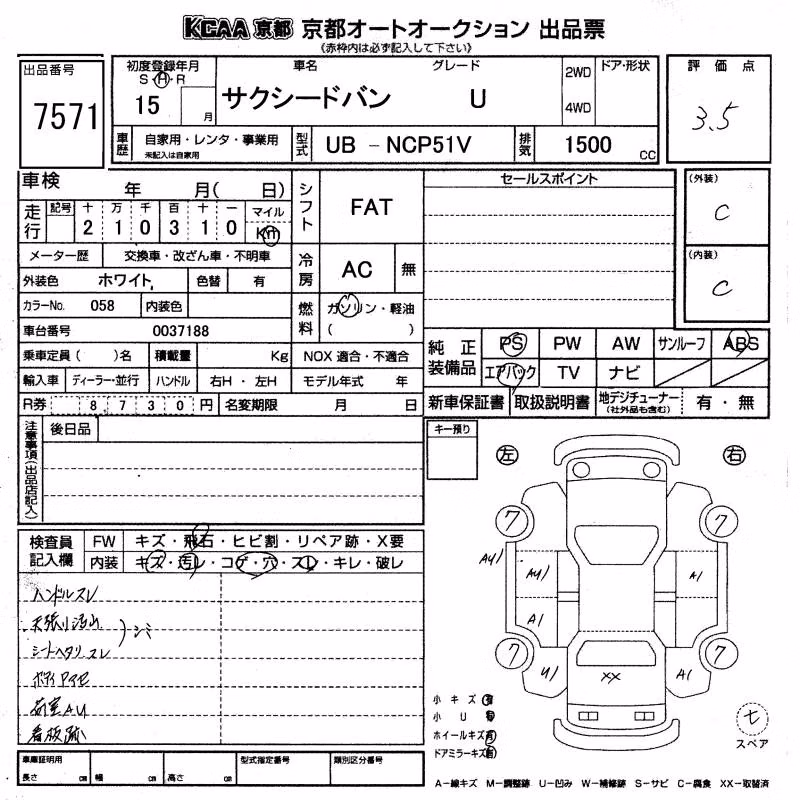 KCAA 京都 京都オートオークション 出品票
《赤枠内は必ず記入して下さい》
出品番号
7571
初度登録年月
S・H・R
15 月
車名
サクシードバン
グレード
U
2WD
4WD
ドア・形状
評価点
3.5
車歴
自家用・レンタ・事業用
未記入は自家用
型式
UB － NCP51V
排気
1500 cc
車検 年 月( 日)
走行
記号 十 万 千 百 十 一
2 1 0 3 1 0
マイル
Km
メーター歴 交換車・改ざん車・不明車
外装色 ホワイト 色替 有
カラーNo. 058 内装色
車台番号 0037188
乗車定員( )名 積載量 Kg
輸入車 ディーラー・並行 ハンドル 右H・左H
R券 8,730円 名変期限 月 日
シフト
FAT
冷房
AC 無
燃料
ガソリン・軽油
( )
NOX 適合・不適合
モデル年式 年
セールスポイント
(外装)
C
(内装)
C
純正装備品
PS PW AW サンルーフ ABS
エアバック TV ナビ
新車保証書 取扱説明書 地デジチューナー
(社外品も含む)
有・無
注意事項(出品店記入)
後日品
キー預り
左 右
検査員記入欄
FW キズ・飛石・ヒビ割・リペア跡・X要
内装 キズ・汚レ・コゲ・穴・スレ・キレ・破レ
ハンドルスレ
天張り汚れ
シートヘタリ スレ
シミ
荷室AU
看板跡
7 7
AU1 AU1 A1
A1
7 7
U1 XX A1
小キズ有
小U有
ホイールキズ有
ドアミラーキズ有
七
スペア
車庫証明用
長さ cm 幅 cm 高さ cm
型式指定番号
類別区分番号
A－線キズ M－調整跡 U－凹み W－補修跡 S－サビ C－腐食 XX－取替済